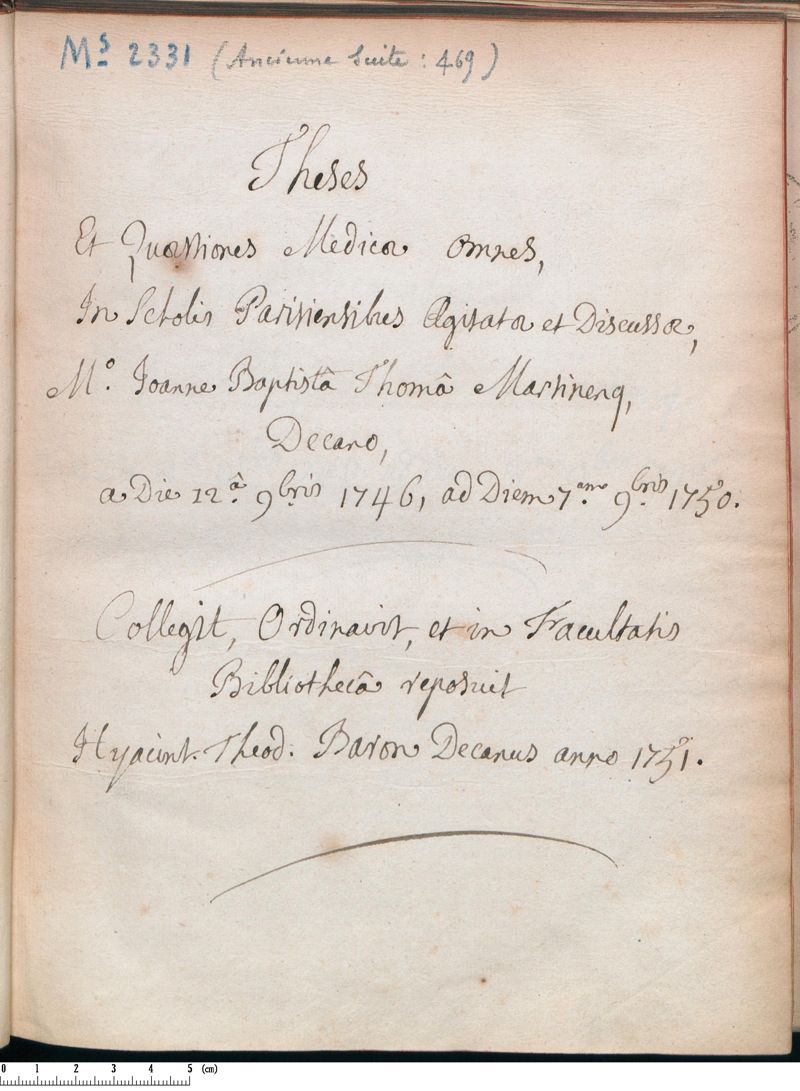 Ms 2331 (Ancienne Suite : 469)
Theses
Et Quæstiones Medicæ omnes,
In Scholis Parisiensibus Agitatæ et Discussæ,
Mo. Joanne Baptistâ Thomâ Martinenq,
Decano,
a Die 12.â 9bris 1746, ad Diem 7.am 9bris 1750.
Collegit, Ordinavit, et in Facultatis
Bibliothecâ reposuit
Hyacint. Theod. Baron Decanus anno 1751.
0 1 2 3 4 5 (cm)